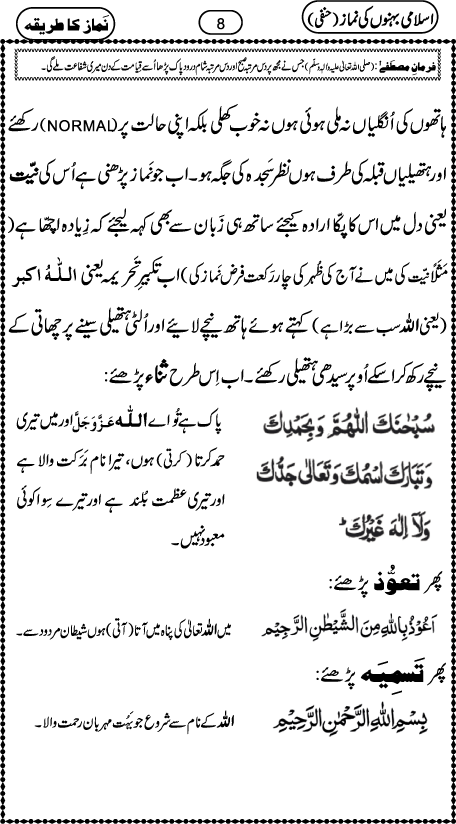 اسلامی بہنوں کی نماز (حنفی) 8 نماز کا طریقہ
فرمانِ مصطفےٰ: (صلی اللہ تعالیٰ علیہ والہٖ وسلم) جس نے مجھ پر دس مرتبہ صبح اور دس مرتبہ شام درود پاک پڑھا اُسے قیامت کے دن میری شفاعت ملے گی۔
ہاتھوں کی اُنگلیاں نہ ملی ہوئی ہوں نہ خوب کھلی بلکہ اپنی حالت پر (NORMAL) رکھئے
اور ہتھیلیاں قبلہ کی طرف ہوں نظر سَجدہ کی جگہ ہو۔ اب جو نَماز پڑھنی ہے اُس کی نیّت
یعنی دل میں اس کا پکّا ارادہ کیجئے ساتھ ہی زَبان سے بھی کہہ لیجئے کہ زِیادہ اچھّا ہے (
مَثَلًا نیّت کی میں نے آج کی ظُہر کی چار رکعت فرض نماز کی) اب تکبیرِ تَحریمہ یعنی اَللہُ اکبر
(یعنی اللہ سب سے بڑا ہے) کہتے ہوئے ہاتھ نیچے لایئے اور اُلٹی ہتھیلی سینے پر چھاتی کے
نیچے رکھ کر اسکے اُوپر سیدھی ہتھیلی رکھئے۔ اب اِس طرح ثَناء پڑھئے:
سُبْحٰنَكَ اللّٰهُمَّ وَبِحَمْدِكَ
وَتَبَارَكَ اسْمُكَ وَتَعَالٰى جَدُّكَ
وَلَآ اِلٰهَ غَيْرُكَ ؕ
پاک ہے تُو اے اللہ عَزَّوَجَلَّ اور میں تیری
حمد کرتا (کرتی) ہوں، تیرا نام بَرَکت والا ہے
اور تیری عظمت بُلند ہے اور تیرے سِوا کوئی
معبود نہیں۔
پھر تعوُّذ پڑھئے:
اَعُوْذُ بِاللّٰهِ مِنَ الشَّيْطٰنِ الرَّجِيْم میں اللہ تعالیٰ کی پناہ میں آتا (آتی) ہوں شیطان مردود سے۔
پھر تَسمِیَہ پڑھئے:
بِسْمِ اللّٰهِ الرَّحْمٰنِ الرَّحِيْمِ اللہ کے نام سے شروع جو بَہُت مہربان رحمت والا۔